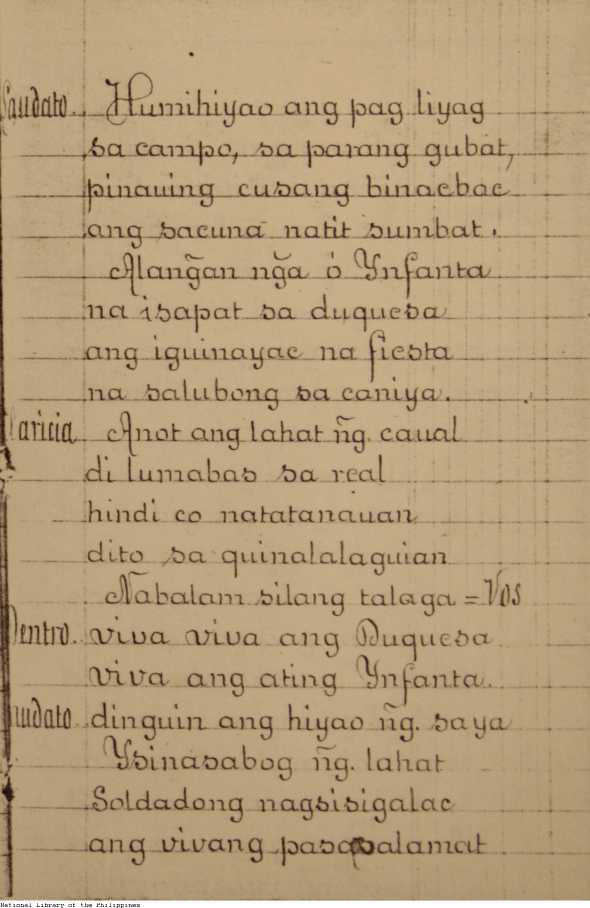 Laudato.. Humihiyao ang pag liyag
sa campo, sa parang gubat,
pinauing cusang binacbac
ang sacuna natit sumbat.
Alang̃an ng̃a ó Ynfanta
na isapat sa duquesa
ang iguinayac na fiesta
na salubong sa caniya.
Laricia Anot ang lahat ñg. caual
di lumabas sa real
hindi co natatanauan
dito sa quinalalaguian
Nabalam silang talaga = Vos
Dentro. viva viva ang Duquesa
viva ang ating Ynfanta.
Laudato dinguin ang hiyao ñg. saya
Ysinasabog ñg. lahat
Soldadong nagsisigalac
ang vivang pasasalamat
National Library of the Philippines